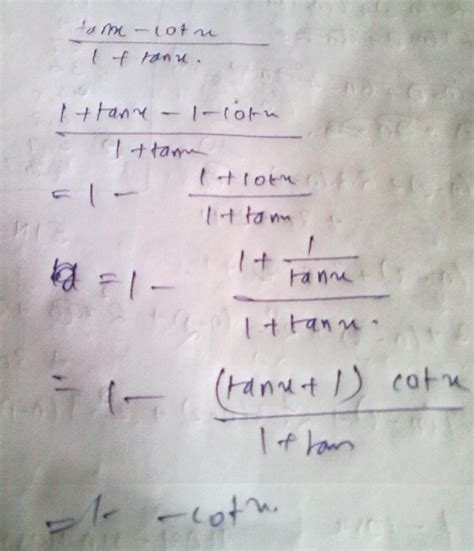 tanx - cotx
1 + tanx.
1 + tanx - 1 - cotx
1 + tanx
= 1 - 1 + cotx
1 + tanx
= 1 - 1 + 1
tanx
1 + tanx.
= 1 - (tanx + 1) cotx
1 + tan
= 1 - - cotx.